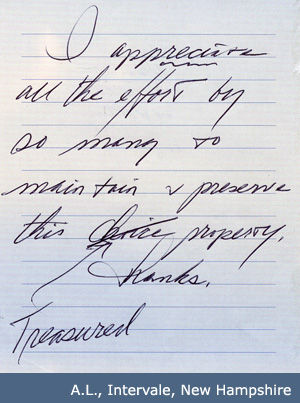 I appreciate
all the effort by
so many to
maintain & preserve
this choice property.
Thanks.
Treasured
A.L., Intervale, New Hampshire